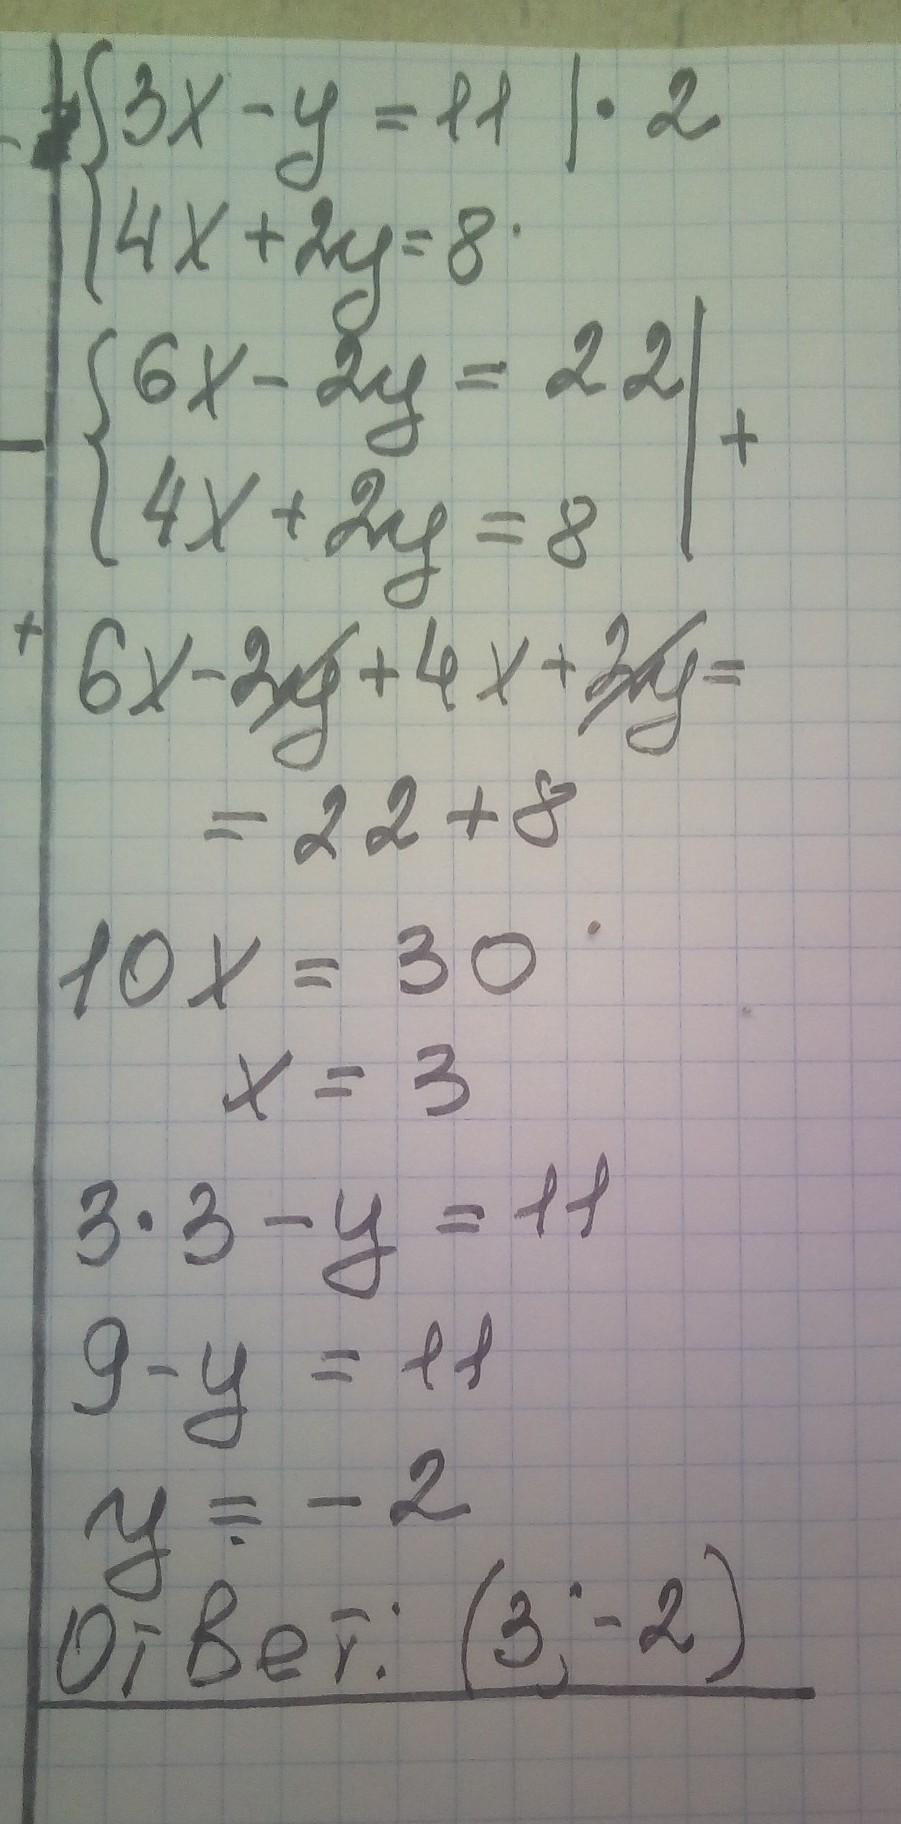 {3x - y = 11 | · 2
{4x + 2y = 8
{6x - 2y = 22 | +
{4x + 2y = 8
6x - 2y + 4x + 2y =
= 22 + 8
10x = 30
x = 3
3 · 3 - y = 11
9 - y = 11
y = - 2
Ответ: (3; -2)